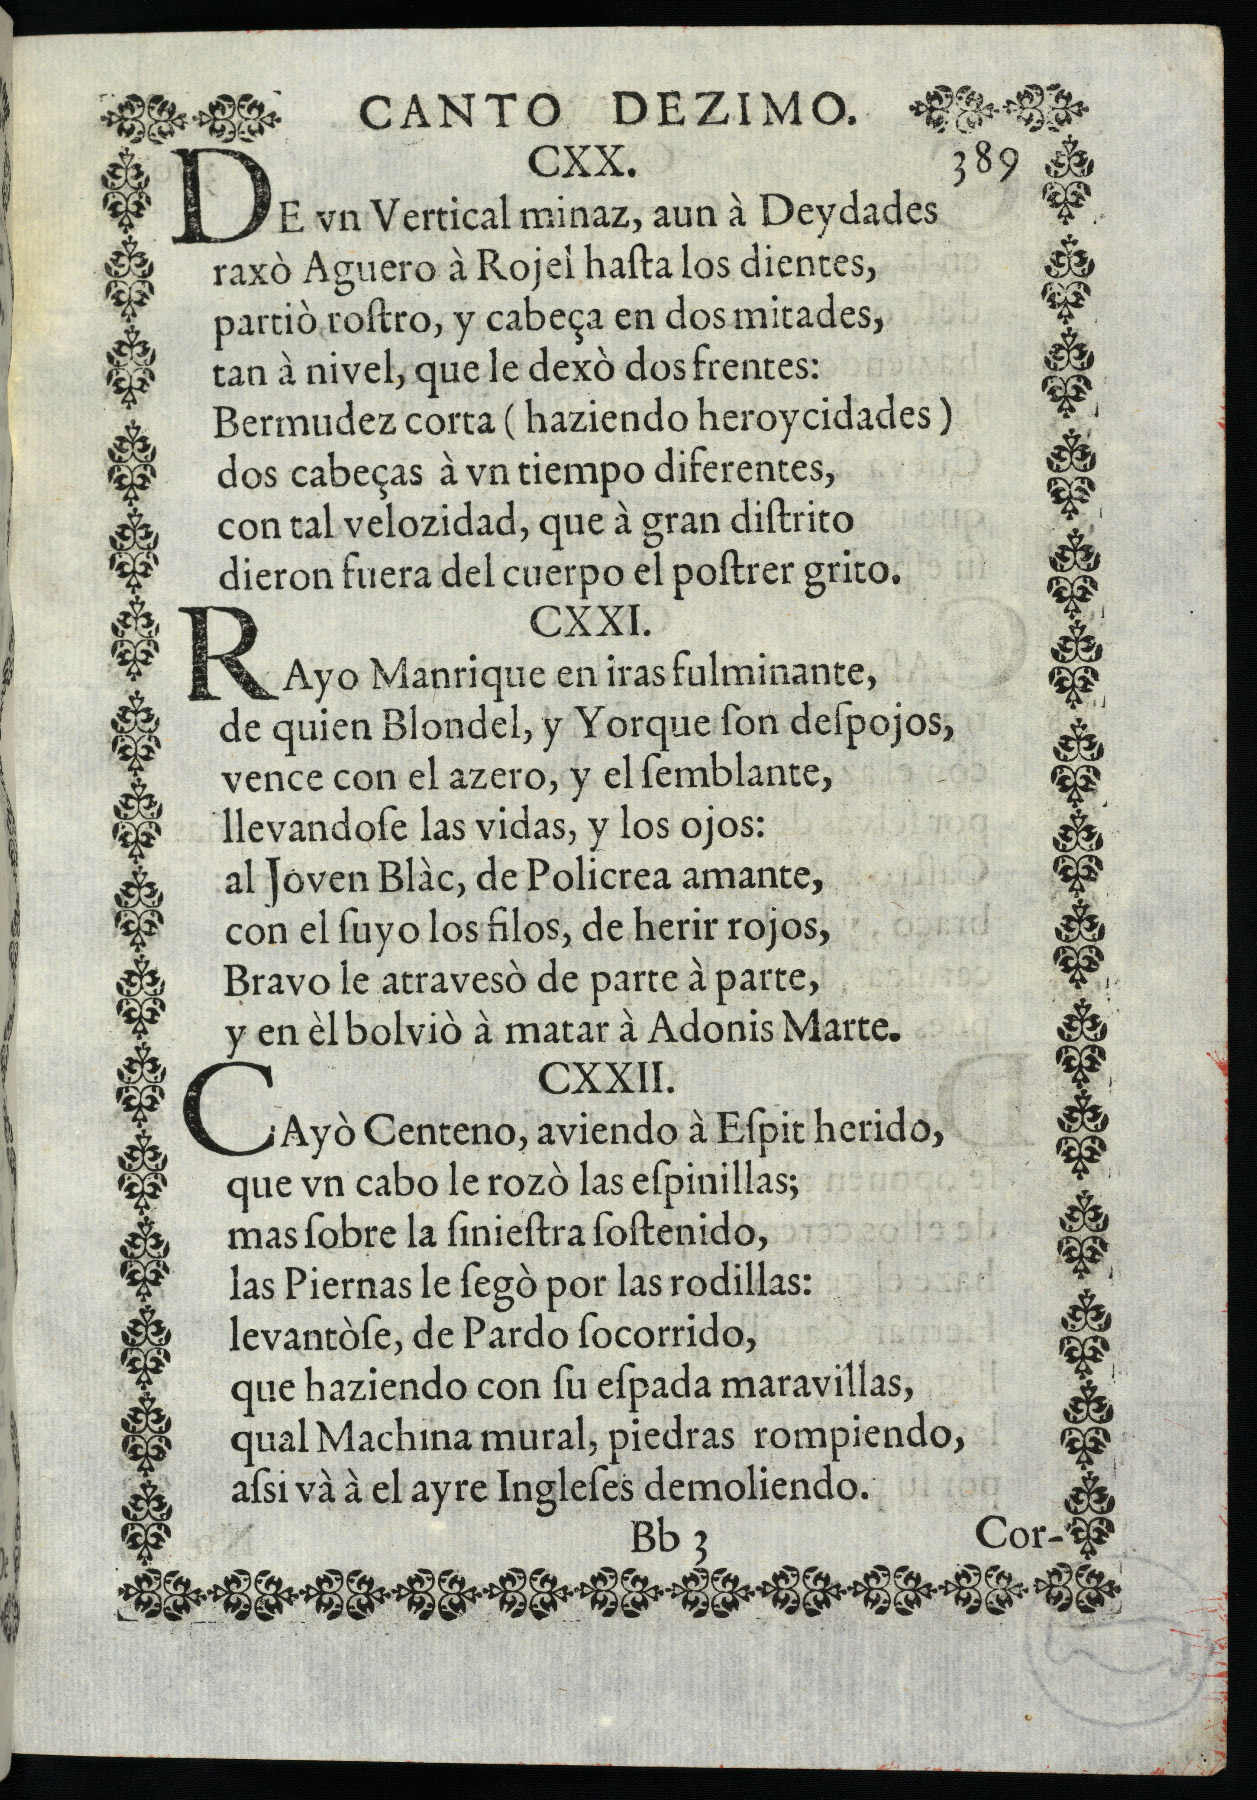 CANTO DEZIMO.
CXX. 389
DE vn Vertical minaz, aun à Deydades
raxò Aguero à Rojel haſta los dientes,
partiò roſtro, y cabeça en dos mitades,
tan à nivel, que le dexò dos frentes:
Bermudez corta (haziendo heroycidades)
dos cabeças à vn tiempo diferentes,
con tal velozidad, que à gran diſtrito
dieron fuera del cuerpo el poſtrer grito.
CXXI.
RAyo Manrique en iras fulminante,
de quien Blondel, y Yorque ſon deſpojos,
vence con el azero, y el ſemblante,
llevandoſe las vidas, y los ojos:
al Joven Blàc, de Policrea amante,
con el ſuyo los filos, de herir rojos,
Bravo le atravesò de parte à parte,
y en èl bolviò à matar à Adonis Marte.
CXXII.
CAyò Centeno, aviendo à Eſpit herido,
que vn cabo le rozò las eſpinillas;
mas ſobre la ſinieſtra ſoſtenido,
las Piernas le ſegò por las rodillas:
levantòſe, de Pardo ſocorrido,
que haziendo con ſu eſpada maravillas,
qual Machina mural, piedras rompiendo,
aſsi và à el ayre Ingleſes demoliendo.
Bb 3 Cor-